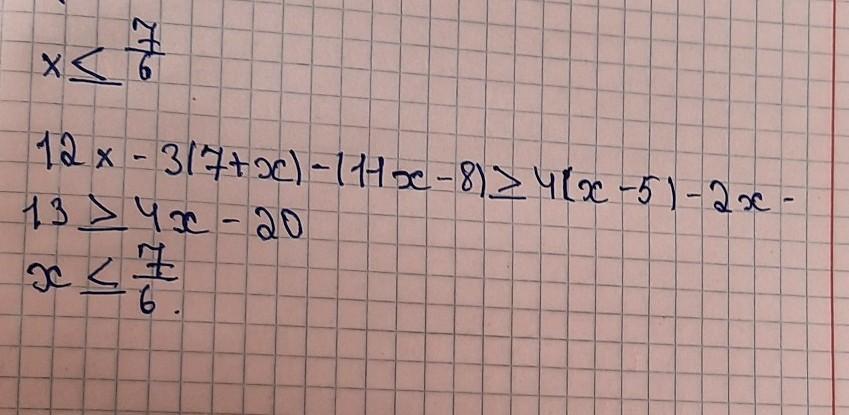 x ≤ 7/6
12x - 3(7+x) - (11x - 8) ≥ 4(x - 5) - 2x -
13 ≥ 4x - 20
x ≤ 7/6.